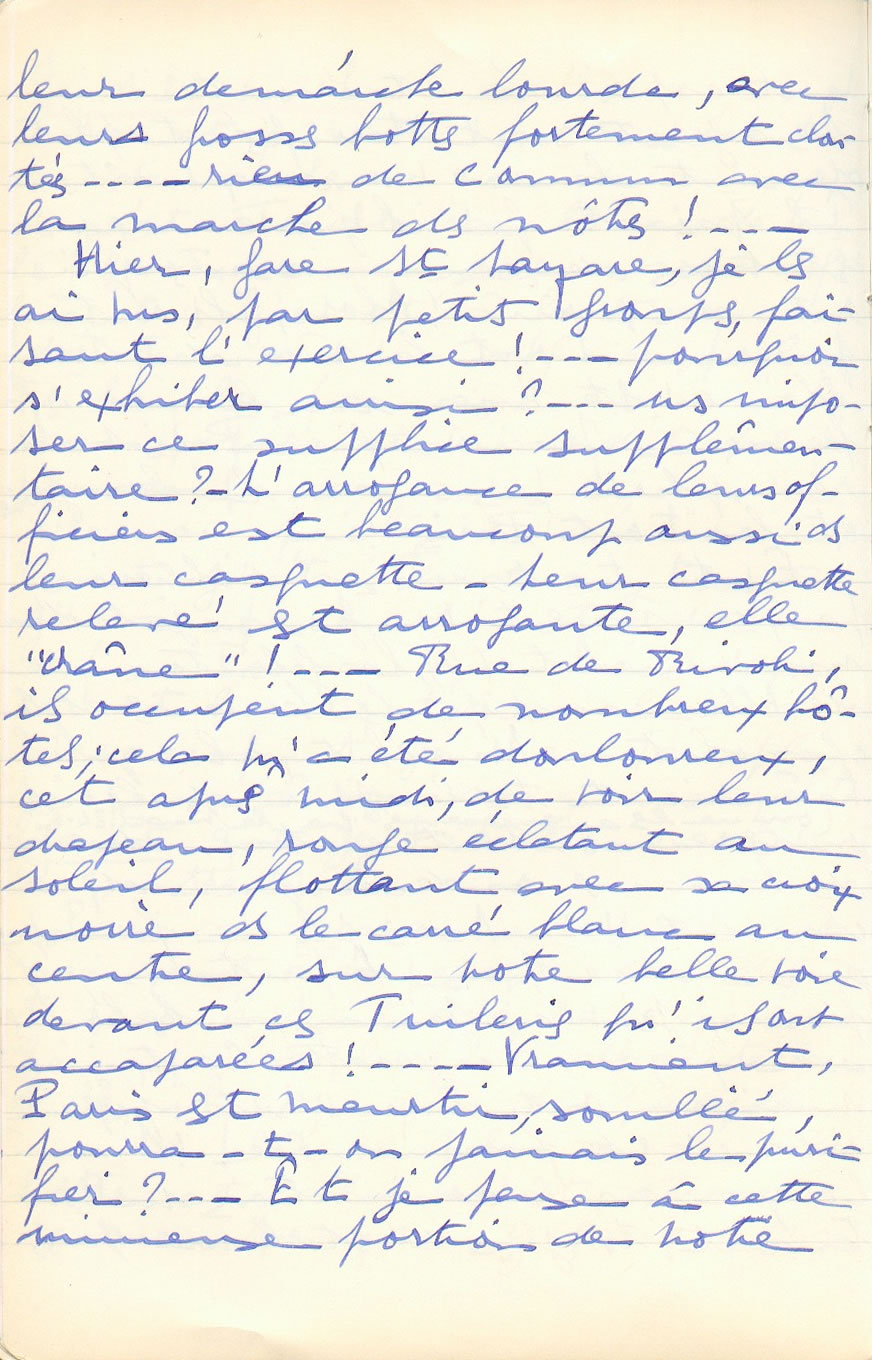 leur démarche lourde, avec
leurs grosses bottes fortement clou-
tés ---- rien de commun avec
la marche des nôtres ! ---
Hier, gare St Lazare, je les
ai vus, par petits groups, fai-
sant l'exercice ! --- pourquoi
s'exhiber ainsi ? --- ns impo-
ser ce supplice supplémen-
taire ? - L'arrogance de leurs of-
ficiers est beaucoup aussi ds
leur casquette - leur casquette
relevé est arrogante, elle
"crâne" ! --- Rue de Rivoli,
ils occupent de nombreux hô-
tels ; cela m'a été douloureux,
cet après midi, de voir leur
drapeau, rouge éclatant au
soleil, flottant avec sa croix
noire ds le carré blanc au
centre, sur notre belle voie
devant ces Tuileries qu'ils ont
accaparées ! ---- Vraiment,
Paris est meurtri, souillé,
pourra-t-on jamais le puri-
fier ? --- Et je pense à cette
immense portion de notre